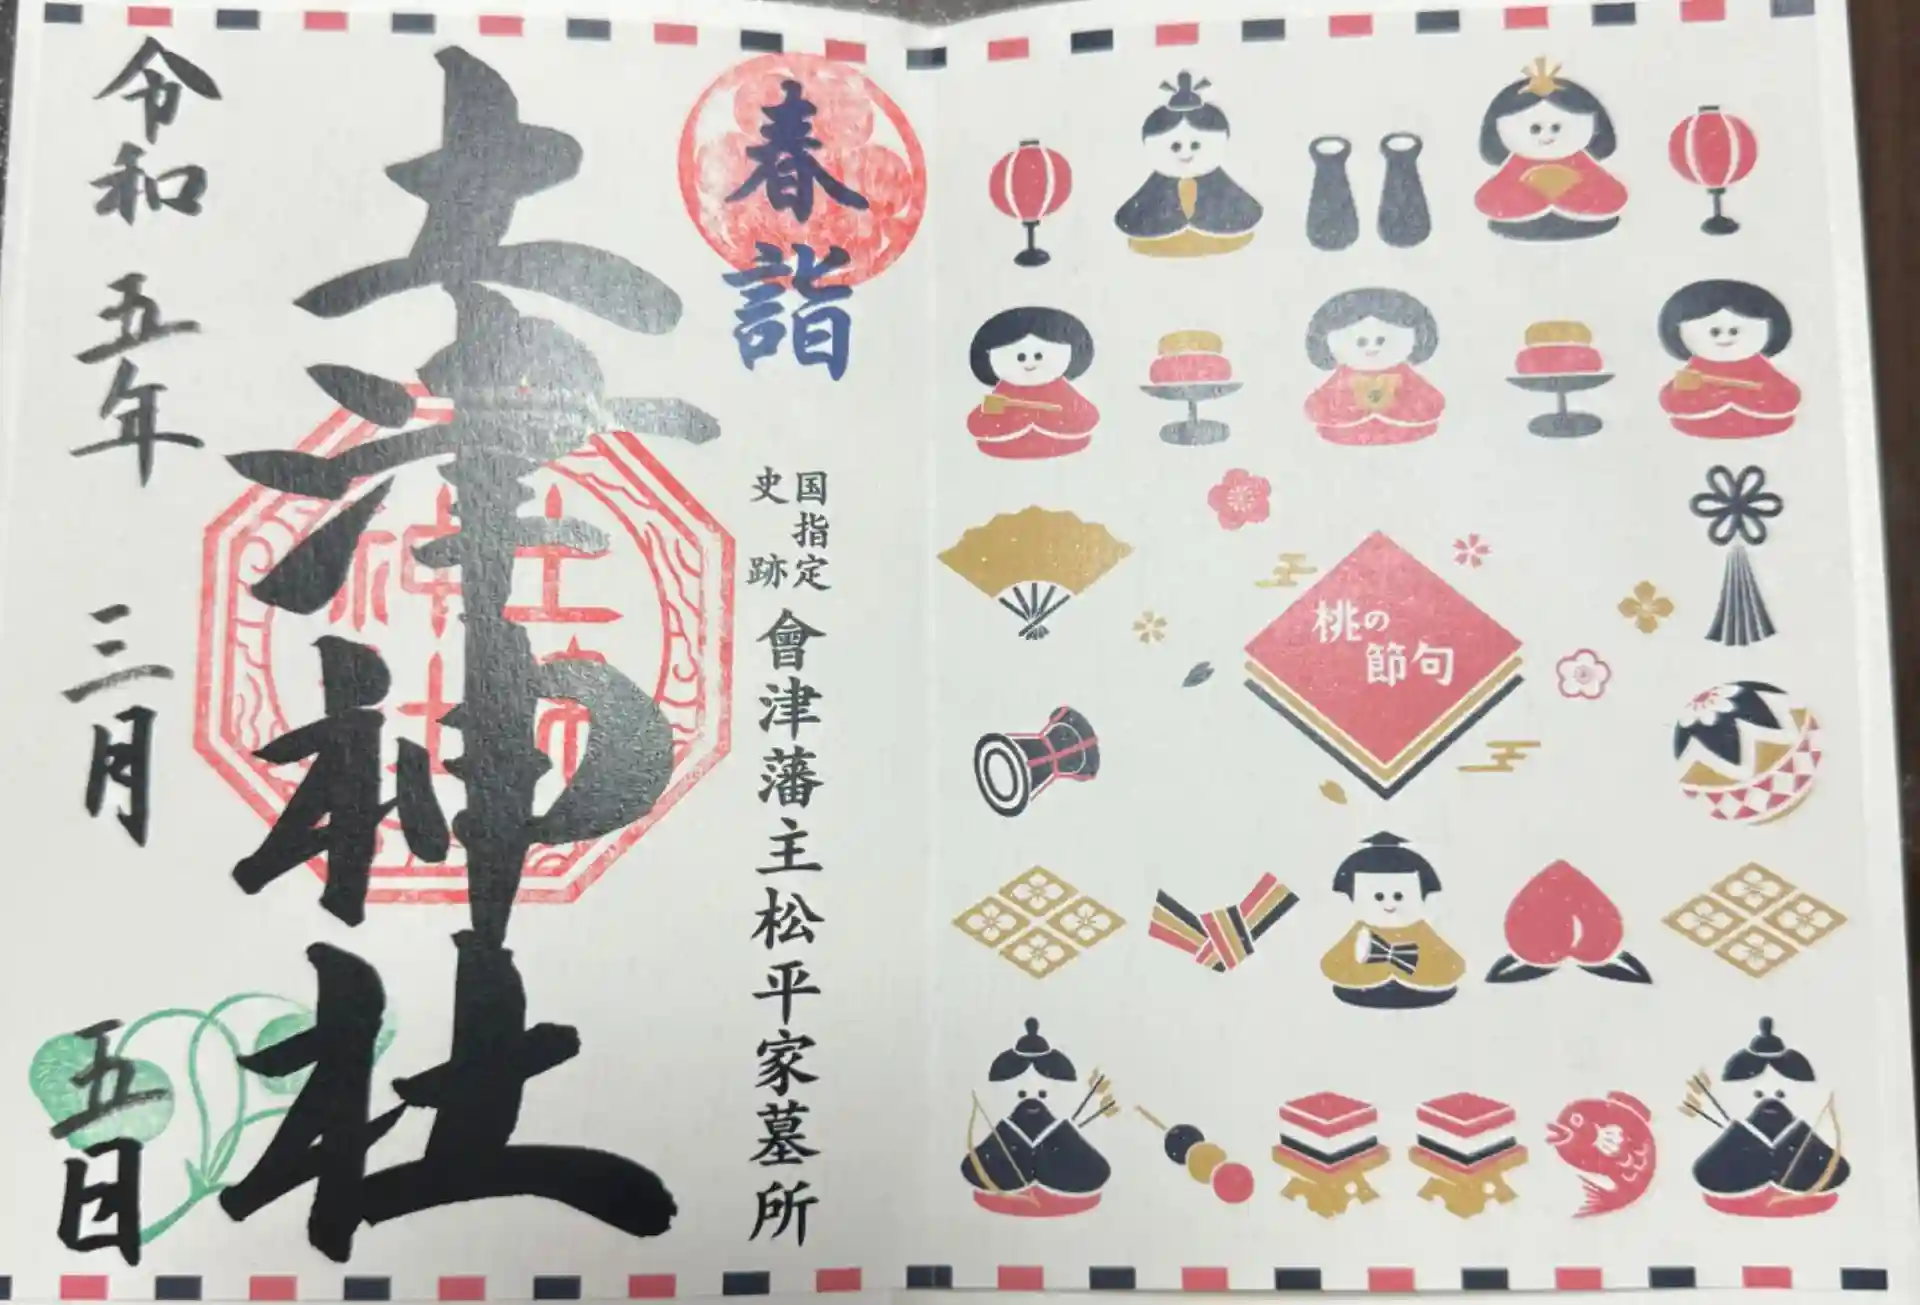 春詣
国指定
史跡
會津藩主松平家墓所
土津神社
土津
神社
令和五年三月五日
桃の
節句